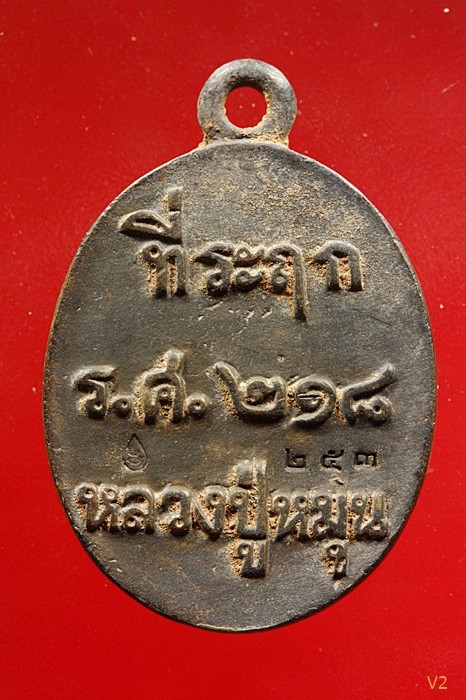 ที่ระฤก
ร.ศ. ๒๑๘
๒๕๓
หลวงปู่หมุน
V2